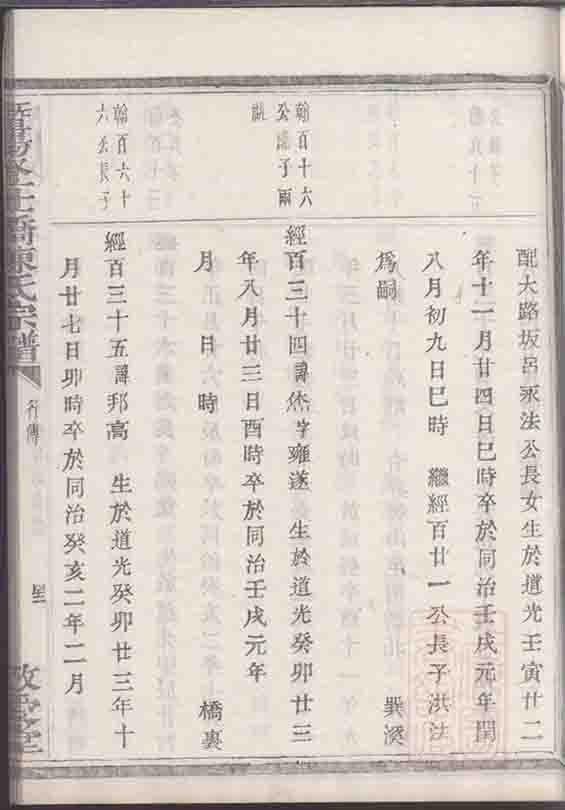 配大路坂呂永法公長女生於道光壬寅廿二
年十一月廿四日巳時卒於同治壬戌元年閏
八月初九日巳時　繼經百廿一公長子洪法
為嗣　巽溪
翰百十六
公 子兩
經百三十四諱烋字雍遂　生於道光癸卯廿三
年八月廿三日酉時卒於同治壬戌元年
月　日　時　橋裏
翰百六十
六公長子
經百三十五諱邦高　生於道光癸卯廿三年十
月廿七日卯時卒於同治癸亥二年二月
橋陳氏宗譜
行傳